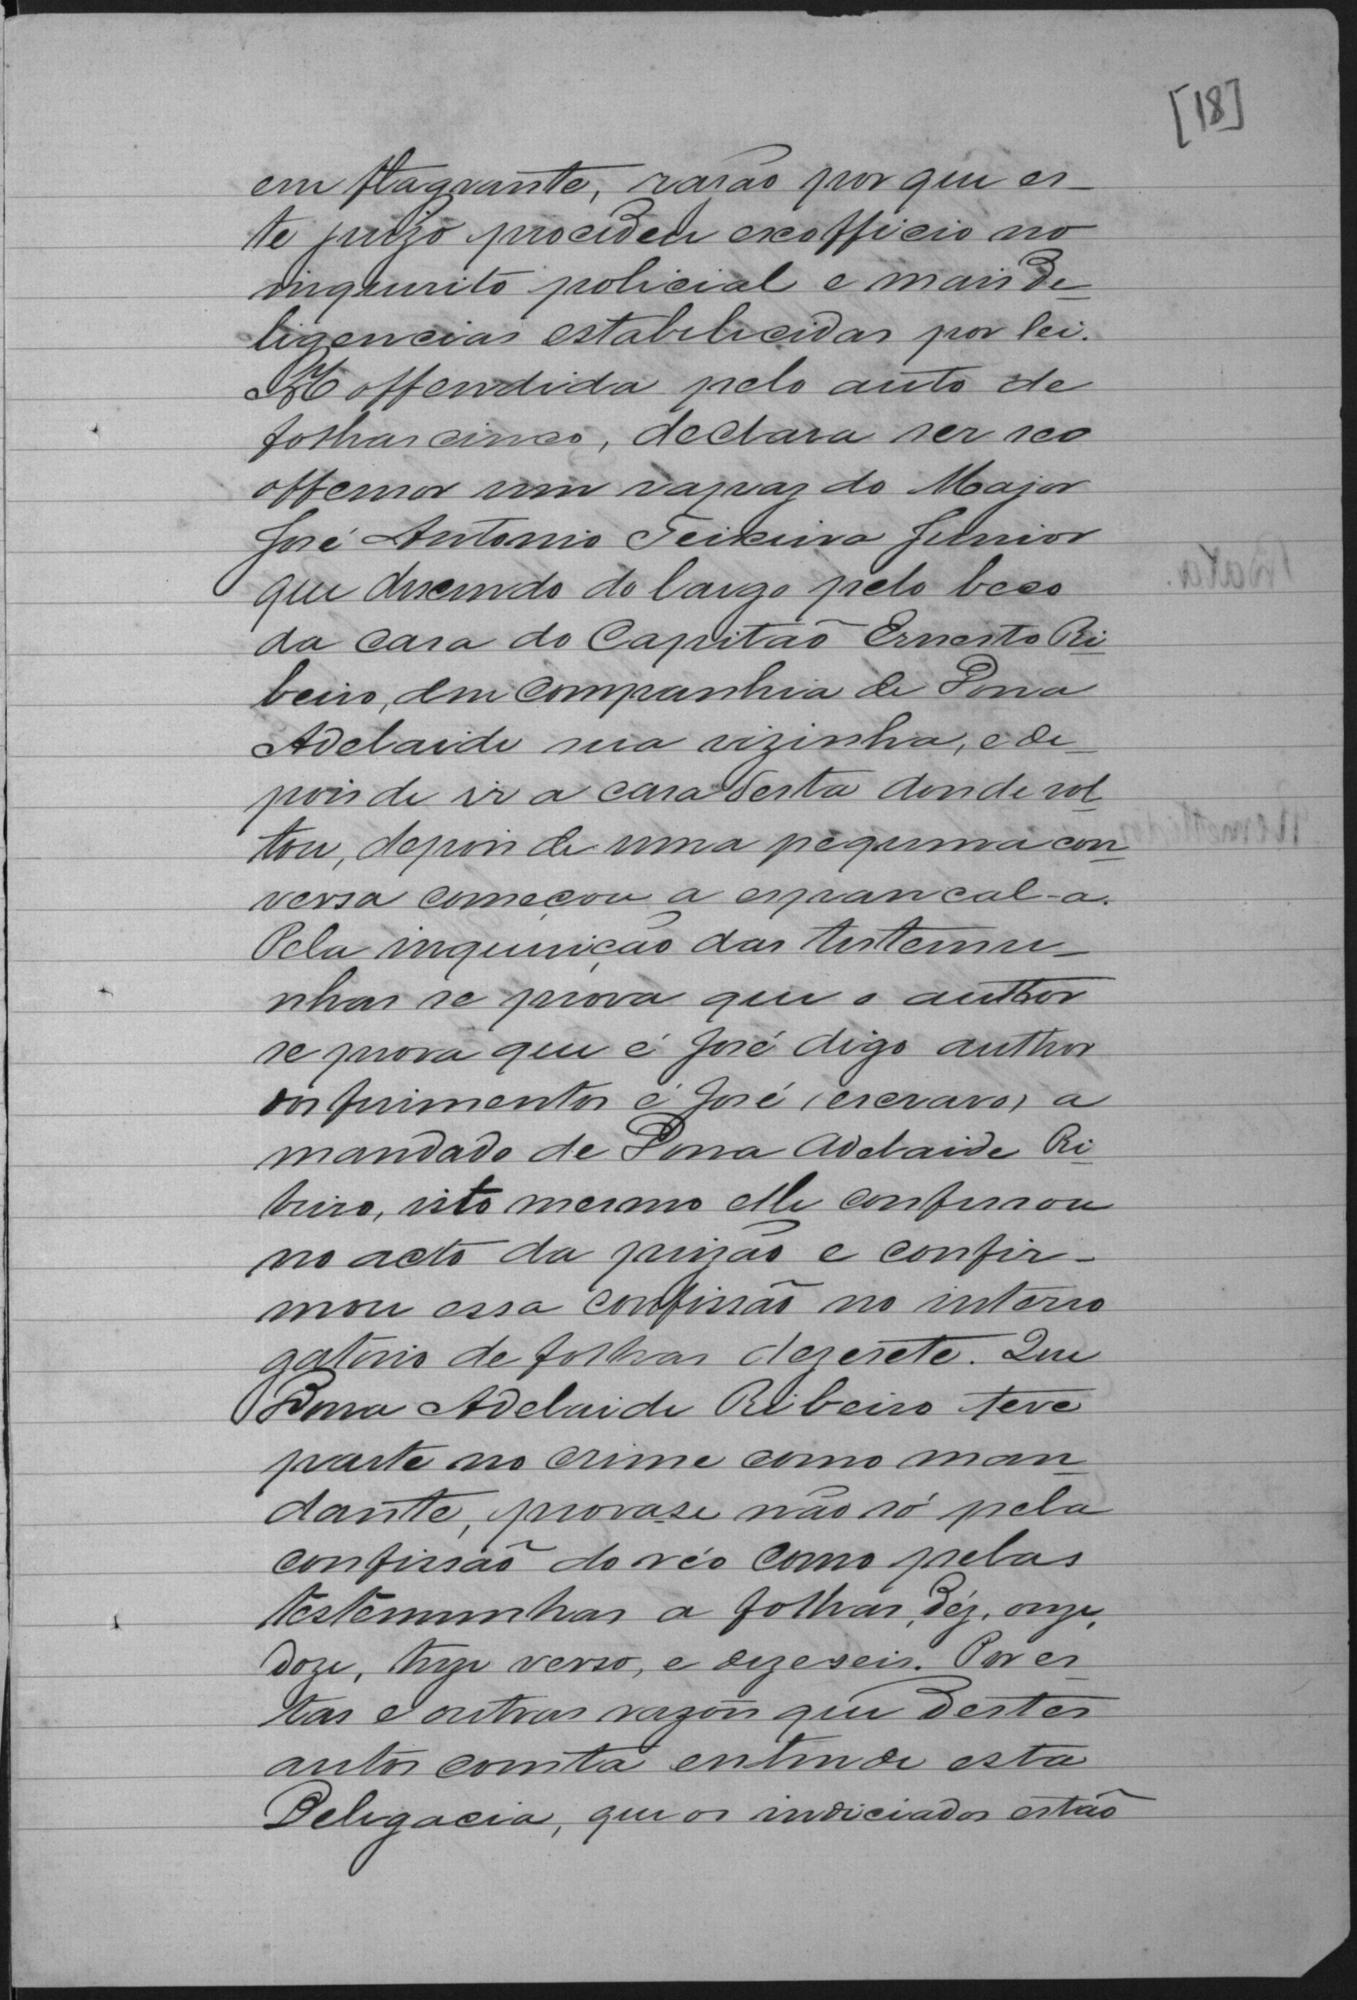 [18]
em flagrante, rasão por que es-
te juizo procedeu exofficio no
inquerito policial e mais de-
ligencias estabelecidas por lei.
A offendida pelo auto de
folhas cinco, declara ser seo
offensor um rapaz do Major
José Antonio Teixeira Junior
que descendo do largo pelo beco
da casa do Capitão Ernesto Ri-
beiro, em companhia de Dona
Adelaide sua vizinha, e de-
pois de ir a casa desta donde vol-
tou, depois de uma pequena con-
versa começou a espancal-a.
Pela inquirição das testemu-
nhas se prova que o author
se prova que é José digo author
dos ferimentos é José (escravo) a
mandado de Dona Adelaide Ri-
beiro, isto mesmo elle confessou
no acto da prizão e confir-
mou essa confissão no interro
gatorio de folhas dezesete. Que
Dona Adelaide Ribeiro teve
parte no crime como man-
dante, prova-se não só pela
confissão do réo como pelas
testemunhas a folhas, déz, onze,
doze, treze verso, e dezeseis. Por es
tas e outras razões que destes
autos consta entende esta
Delegacia, que os indiciados estão